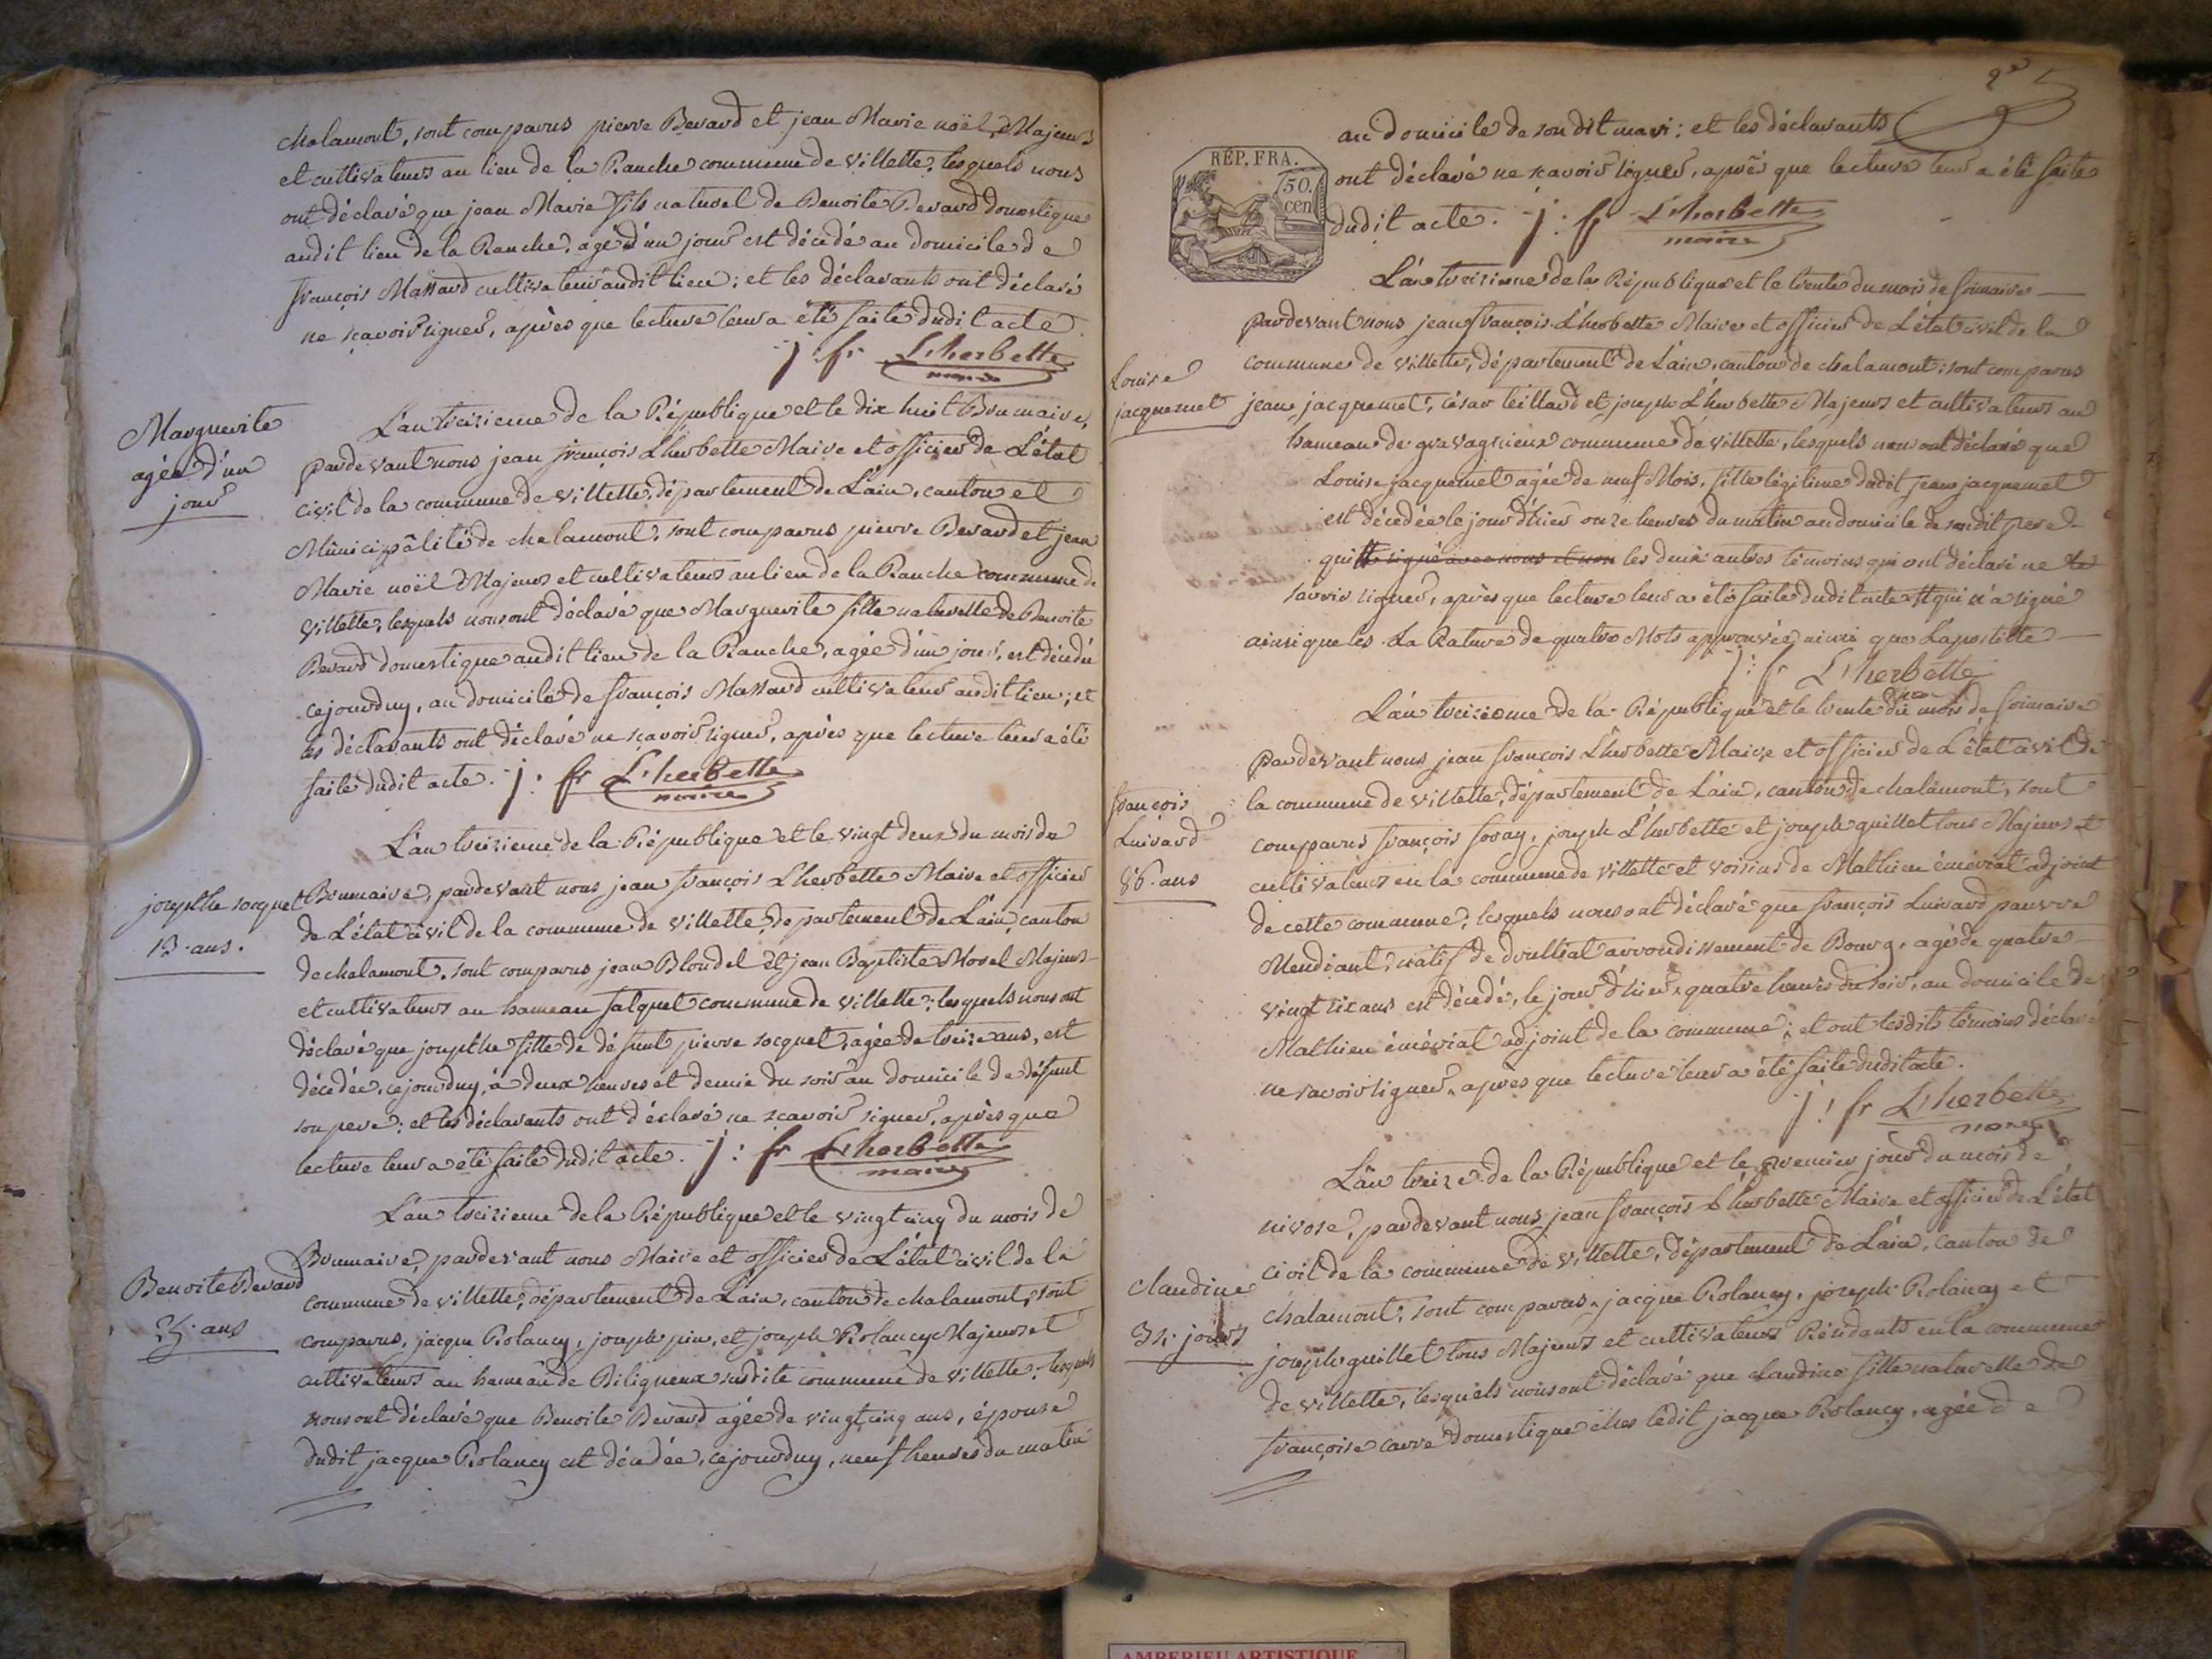 chalamont, sont comparus pierre Bevard et jean Marie noël, Majeurs
et cultivateurs au lieu de la Ranche commune de villette, lesquels nous
ont déclaré que jean Marie fils naturel de Benoite Bevard domestique
audit lieu de la Ranche, agé d'un jour est décédé au domicile de
françois Massard cultivateur audit lieu; et les déclarants ont déclaré
ne sçavoir signer, après que lecture leur a été faite dudit acte
j: fr L'herbette
maire
Marguerite
agée d'un
jour
L'an treizieme de la République et le dix huit Brumaire,
pardevant nous jean françois Lherbette Maire et officier de L'état
civil de la commune de villette, département de L'ain, canton et
Municipalité de chalamont, sont comparus pierre Bevard et jean
Marie noël Majeurs et cultivateurs au lieu de la Ranche commune de
villette, lesquels nous ont déclaré que Marguerite fille naturelle de Benoite
Bevard domestique audit lieu de la Ranche, agée d'un jour, est décédée
cejourduy, au domicile de françois Massard cultivateur audit lieu; et
les déclarants ont déclaré ne sçavoir signer, après que lecture leur a été
faite dudit acte. j: fr L'herbette
maire
L'an treizieme de la République et le vingt deux du mois de
josepthe socquet
13. ans.
Brumaire, pardevant nous jean françois Lherbette Maire et officier
de L'état civil de la commune de villette, département de L'ain, canton
de chalamont, sont comparus jean Blondel et jean Baptiste Morel Majeurs
et cultivateurs au hameau falquet commune de villette; lesquels nous ont
déclaré que josepthe fille de défunt pierre socquet, agée de treize ans, est
décédée, cejourduy, à deux heures et demie du soir au domicile de défunt
son pere; et les déclarants ont déclaré ne sçavoir signer, après que
lecture leur a été faite dudit acte. j: fr L'herbette
maire
L'an treizieme de la République et le vingt cinq du mois de
Benoite Bevard
25. ans
Brumaire, pardevant nous Maire et officier de L'état civil de la
commune de villette, département de L'ain, canton de chalamont, sont
comparus, jacque Rolancy, joseph pin, et joseph Rolancy Majeurs et
cultivateurs au hameau de Biligneux susdite commune de villette; lesquels
nous ont déclaré que Benoite Bevard agée de vingt cinq ans, épouse
dudit jacque Rolancy est décédée, cejourduy, neuf heures du matin
2e
au domicile de son dit mari; et les déclarants
RÉP. FRA.
50.
cen
ont déclaré ne sçavoir signer, après que lecture leur a été faite
dudit acte. j: fr L'herbette
maire
L'an treizieme de la République et le trente du mois de frimaire
pardevant nous jean françois Lherbette Maire et officier de L'état civil de la
Louise
jacquemet
commune de villette, département de L'ain, canton de chalamont; sont comparus
jean jacquemet, césar teillard et joseph L'herbette Majeurs et cultivateurs au
hameau de gravagnieux commune de villette, lesquels nous ont déclaré que
Louise jacquemet agée de neuf Mois, fille légitime dudit jean jacquemet
est décédée le jour d'hier onze heures du matin au domicile de sondit pere
qui signé avec nous et non les deux autres témoins qui ont déclaré ne
savoir signer, après que lecture leur a été faite dudit acte qui n'a signé
ainsi que les La Rature de quatre Mots approuvée ainsi que L'apostille
j: fr L'herbette
maire
L'an treizieme de la République et le trente du mois de frimaire
pardevant nous jean françois Lherbette Maire et officier de L'état civil de
françois
Luivard
86. ans
la commune de villette, département de L'ain, canton de chalamont, sont
comparus françois foray, joseph L'herbette et joseph guillet tous Majeurs et
cultivateurs en la commune de villette et voisins de Mathieu éméviat adjoint
de cette commune; lesquels nous ont déclaré que françois Luivard pauvre
Mendiant, natif de druillat arrondissement de Bourg, agé de quatre
vingt six ans est décédé, le jour d'hier, quatre heures du soir, au domicile de
Mathieu éméviat adjoint de la commune; et ont lesdits témoins déclaré
ne savoir signer, après que lecture leur a été faite dudit acte.
j: fr L'herbette
maire
L'an treize de la République et le premier jour du mois de
nivose, pardevant nous jean françois Lherbette Maire et officier de L'état
claudine
jours
civil de la commune de villette, département de L'ain, canton de
chalamont, sont comparus, jacque Rolancy, joseph Rolancy et
joseph guillet tous Majeurs et cultivateurs Résidants en la commune
de villette, lesquels nous ont déclaré que claudine fille naturelle de
françoise carre domestique chés ledit jacque Rolancy, agée de
AMBERIEU ARTISTIQUE